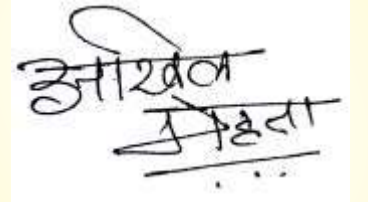 अखिल
मेहता